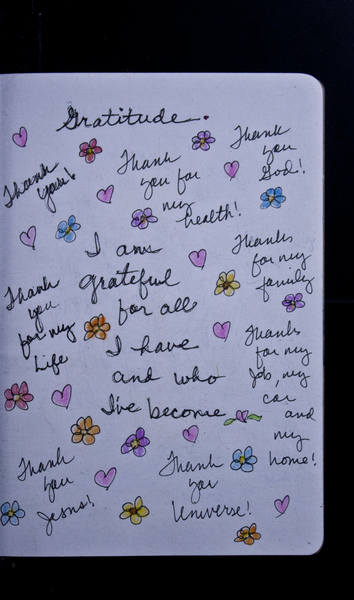 Gratitude.
Thank
you!
Thank
you for
my
health!
Thank
you
God!
I am
grateful
for all
I have
and who
I've become
Thanks
for my
family
Thank
you
for my
Life
Thanks
for my
Job, my
car
and
my
home!
Thank
you
Jesus!
Thank
you
Universe!